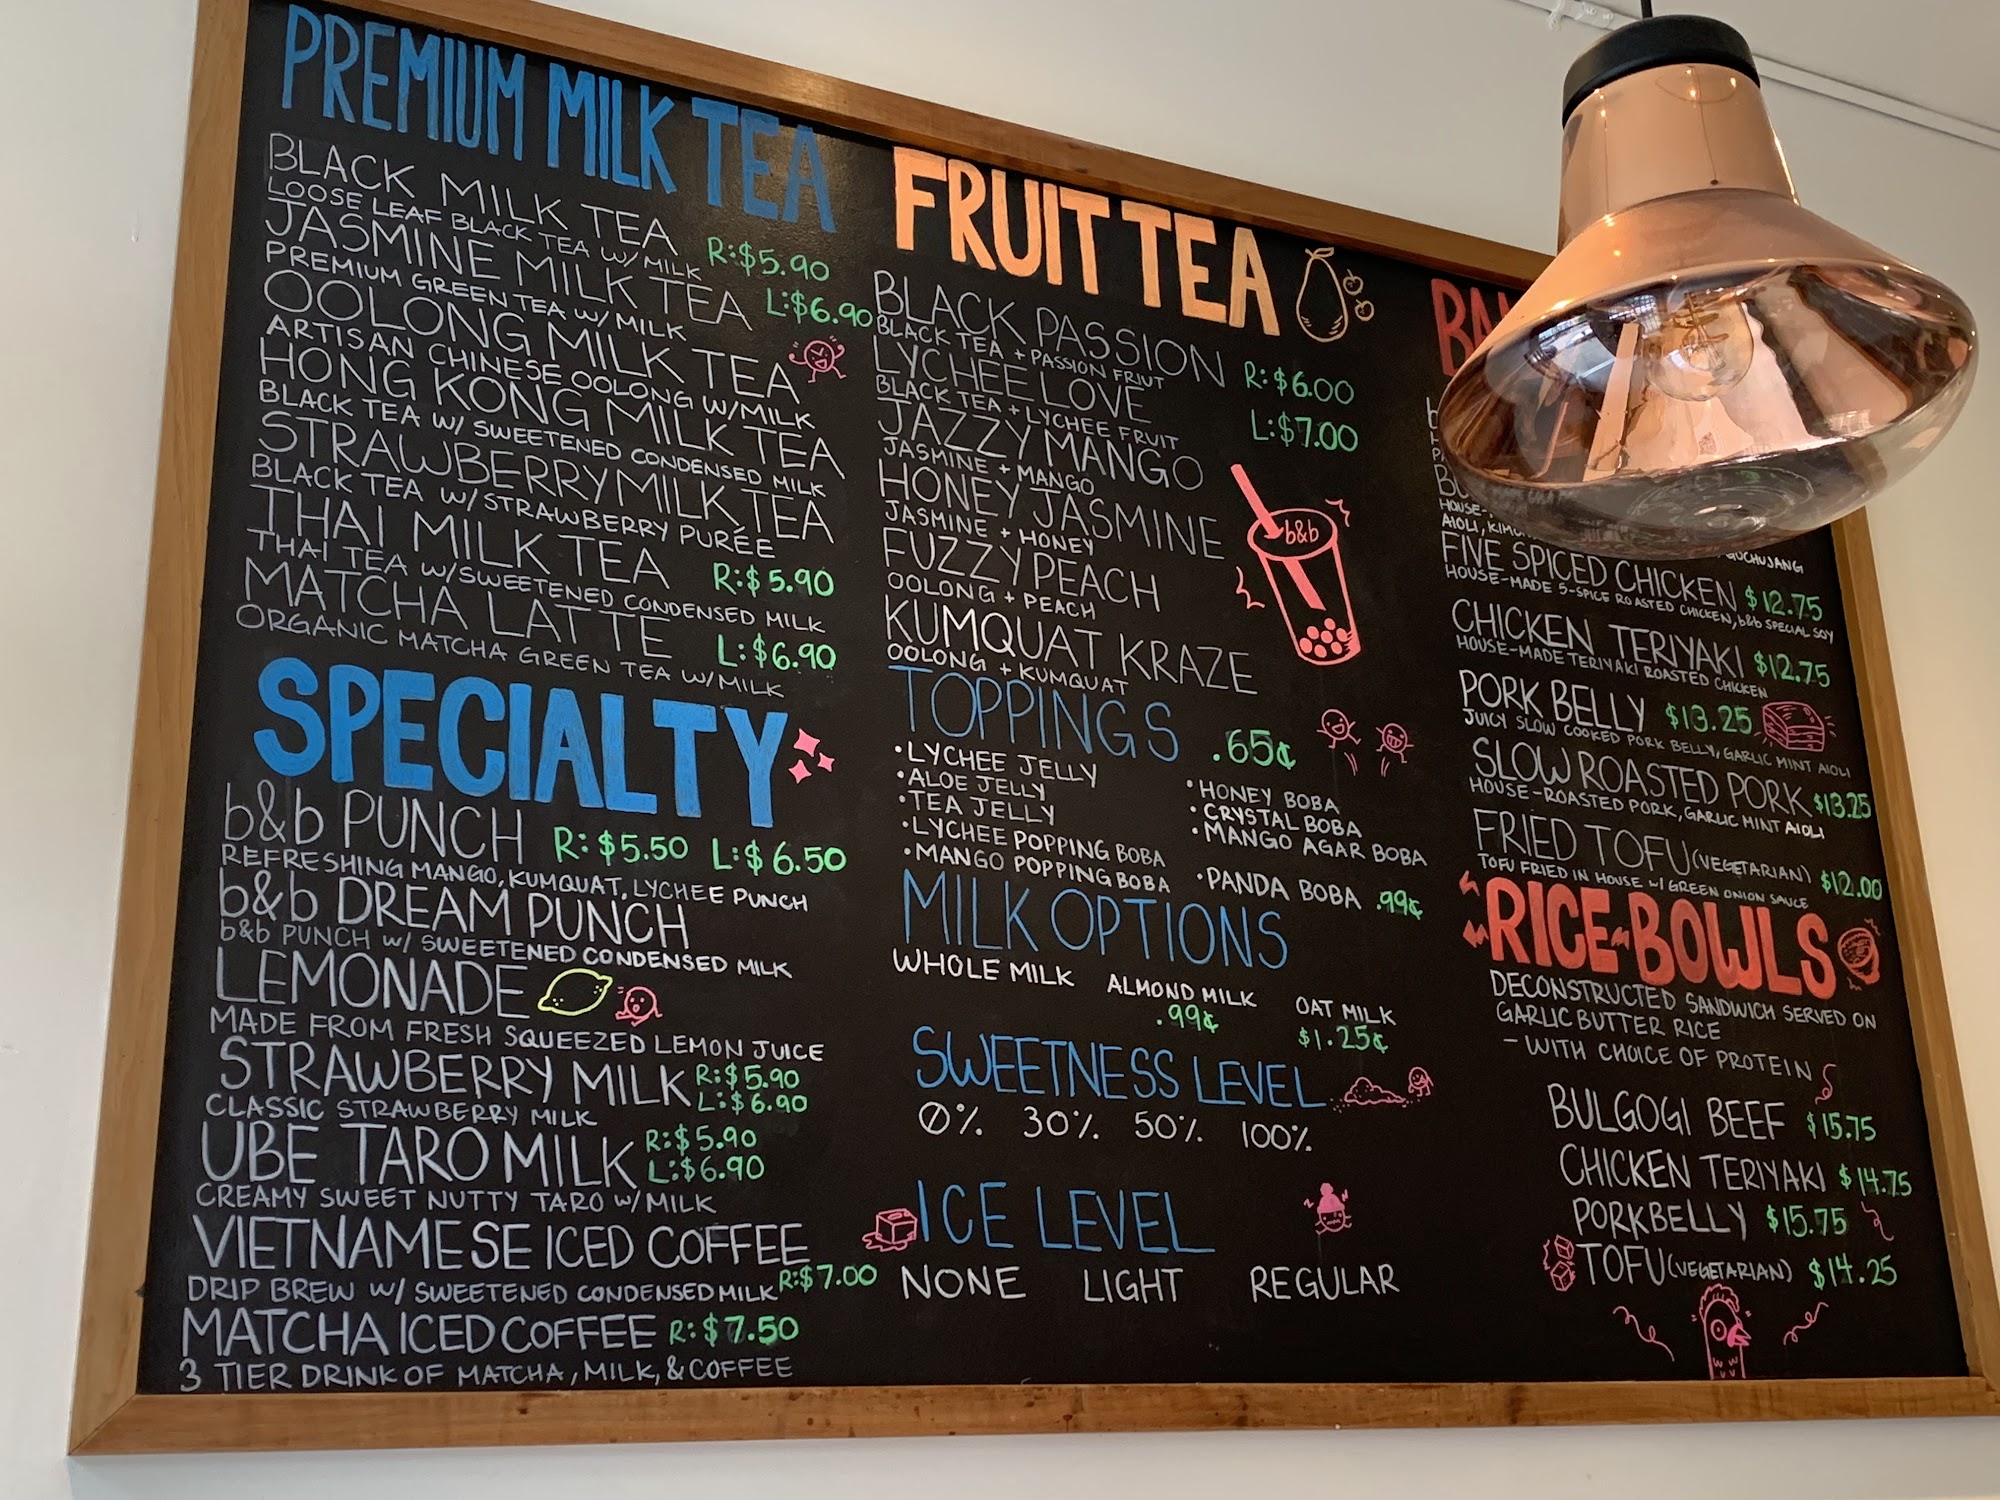 PREMIUM MILK TEA
BLACK MILK TEA
LOOSE LEAF BLACK TEA W/ MILK
R:$5.90
JASMINE MILK TEA
L:$6.90
PREMIUM GREEN TEA W/ MILK
OOLONG MILK TEA
ARTISAN CHINESE OOLONG W/MILK
HONG KONG MILK TEA
BLACK TEA W/ SWEETENED CONDENSED MILK
STRAWBERRY MILK TEA
BLACK TEA W/STRAWBERRY PURÉE
THAI MILK TEA
R:$5.90
THAI TEA W/SWEETENED CONDENSED MILK
MATCHA LATTE
L:$6.90
ORGANIC MATCHA GREEN TEA W/MILK
SPECIALTY
b&b PUNCH R:$5.50 L:$6.50
REFRESHING MANGO, KUMQUAT, LYCHEE PUNCH
b&b DREAM PUNCH
b&b PUNCH W/ SWEETENED CONDENSED MILK
LEMONADE
MADE FROM FRESH SQUEEZED LEMON JUICE
STRAWBERRY MILK R:$5.90
L:$6.90
CLASSIC STRAWBERRY MILK
UBE TARO MILK R:$5.90
L:$6.90
CREAMY SWEET NUTTY TARO W/MILK
VIETNAMESE ICED COFFEE
DRIP BREW W/ SWEETENED CONDENSED MILK R:$7.00
MATCHA ICED COFFEE R:$7.50
3 TIER DRINK OF MATCHA, MILK, & COFFEE
FRUIT TEA
BLACK PASSION
BLACK TEA + PASSION FRIUT
R:$6.00
LYCHEE LOVE
BLACK TEA + LYCHEE FRUIT
L:$7.00
JAZZY MANGO
JASMINE + MANGO
HONEY JASMINE
JASMINE + HONEY
b&b
FUZZY PEACH
OOLONG + PEACH
KUMQUAT KRAZE
OOLONG + KUMQUAT
TOPPINGS .65¢
•LYCHEE JELLY
•ALOE JELLY
•TEA JELLY
•LYCHEE POPPING BOBA
•MANGO POPPING BOBA
•HONEY BOBA
•CRYSTAL BOBA
•MANGO AGAR BOBA
•PANDA BOBA .99¢
MILK OPTIONS
WHOLE MILK ALMOND MILK OAT MILK
.99¢ $1.25¢
SWEETNESS LEVEL
0% 30% 50% 100%
ICE LEVEL
NONE LIGHT REGULAR
HOUSE-
AIOLI, GOCHUJANG
FIVE SPICED CHICKEN $12.75
HOUSE-MADE 5-SPICE ROASTED CHICKEN, b&b SPECIAL SOY
CHICKEN TERIYAKI $12.75
HOUSE-MADE TERIYAKI ROASTED CHICKEN
PORK BELLY $13.25
JUICY SLOW COOKED PORK BELLY, GARLIC MINT AIOLI
SLOW ROASTED PORK $13.25
HOUSE-ROASTED PORK, GARLIC MINT AIOLI
FRIED TOFU (VEGETARIAN) $12.00
TOFU FRIED IN HOUSE W/ GREEN ONION SAUCE
RICE BOWLS
DECONSTRUCTED SANDWICH SERVED ON
GARLIC BUTTER RICE
- WITH CHOICE OF PROTEIN
BULGOGI BEEF $15.75
CHICKEN TERIYAKI $14.75
PORKBELLY $15.75
TOFU (VEGETARIAN) $14.25